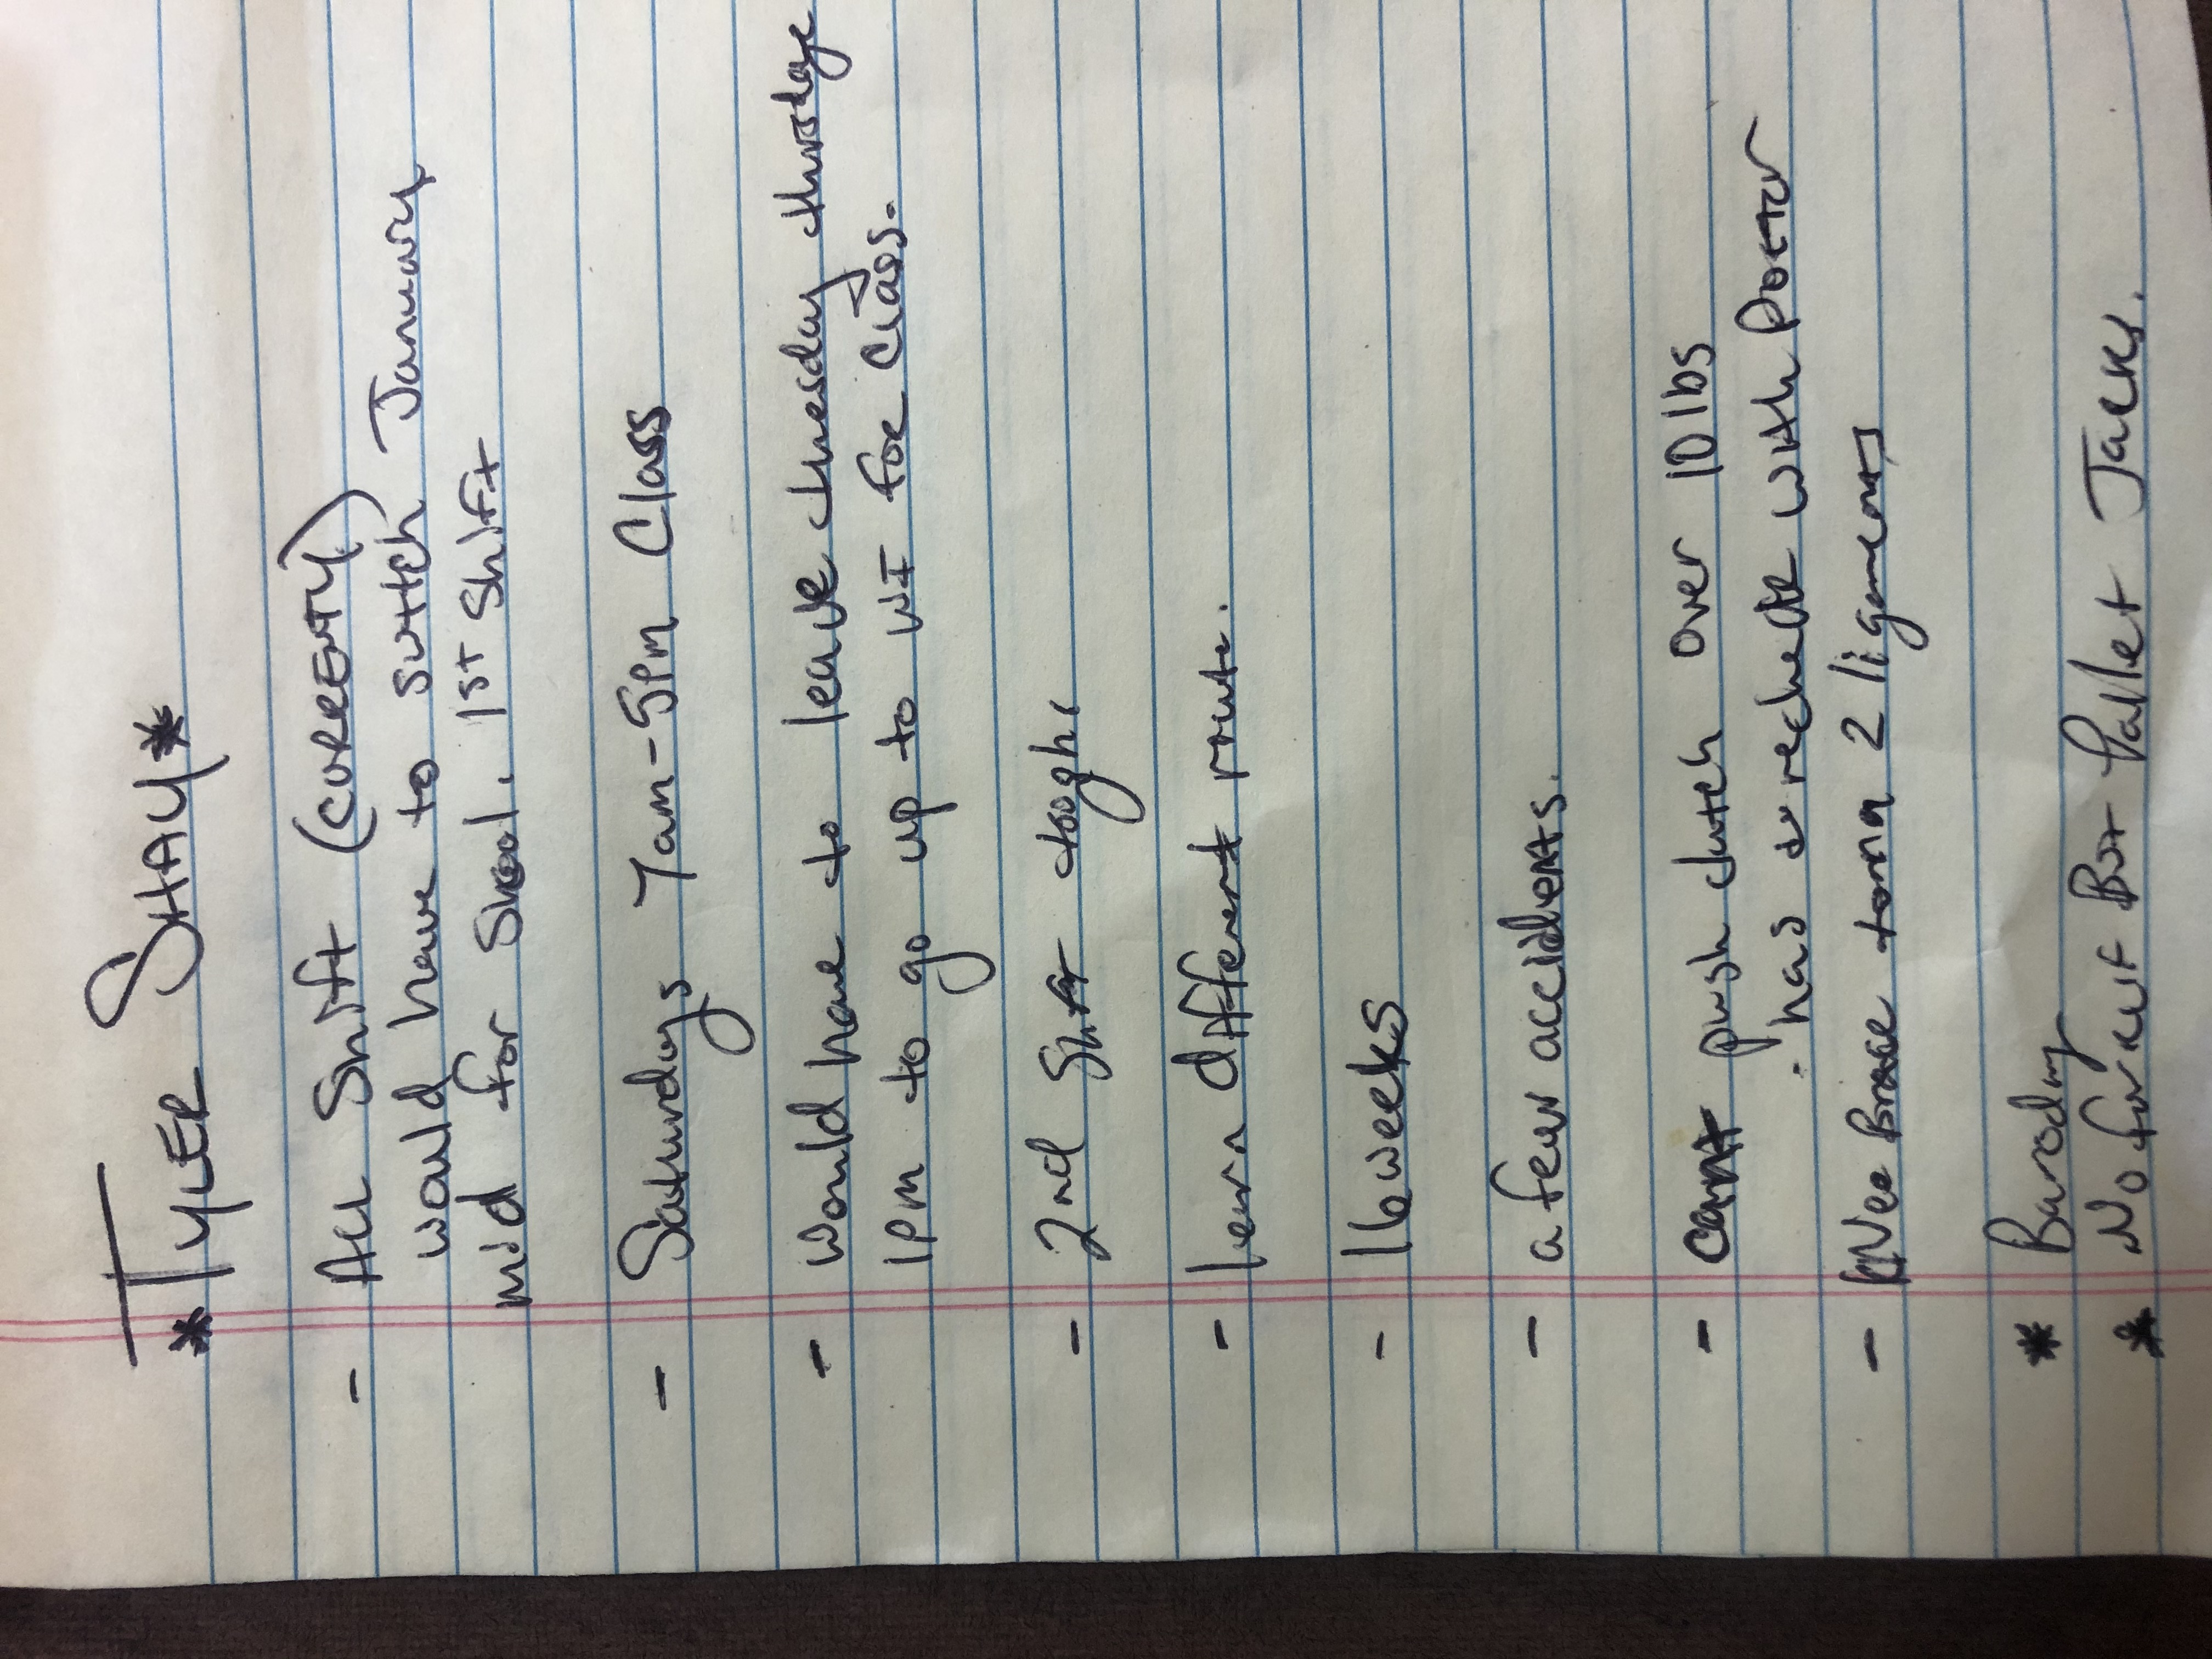 * TYLER SHAY *
- All Shift (CURRENTLY)
would have to switch January
mid for Shool. 1st Shift
- Saturdays 7am-5pm Class
- would have to leave tuesday thursday
1pm to go up to WI for Class.
- 2nd Shift
- learn different route.
- 16 weeks
- a few accidents.
- cant push clutch over 10 lbs
· has to recheck with Doctor
- KNee Brace torn 2 ligaments
*
* No forklift But Pallet Jacks.